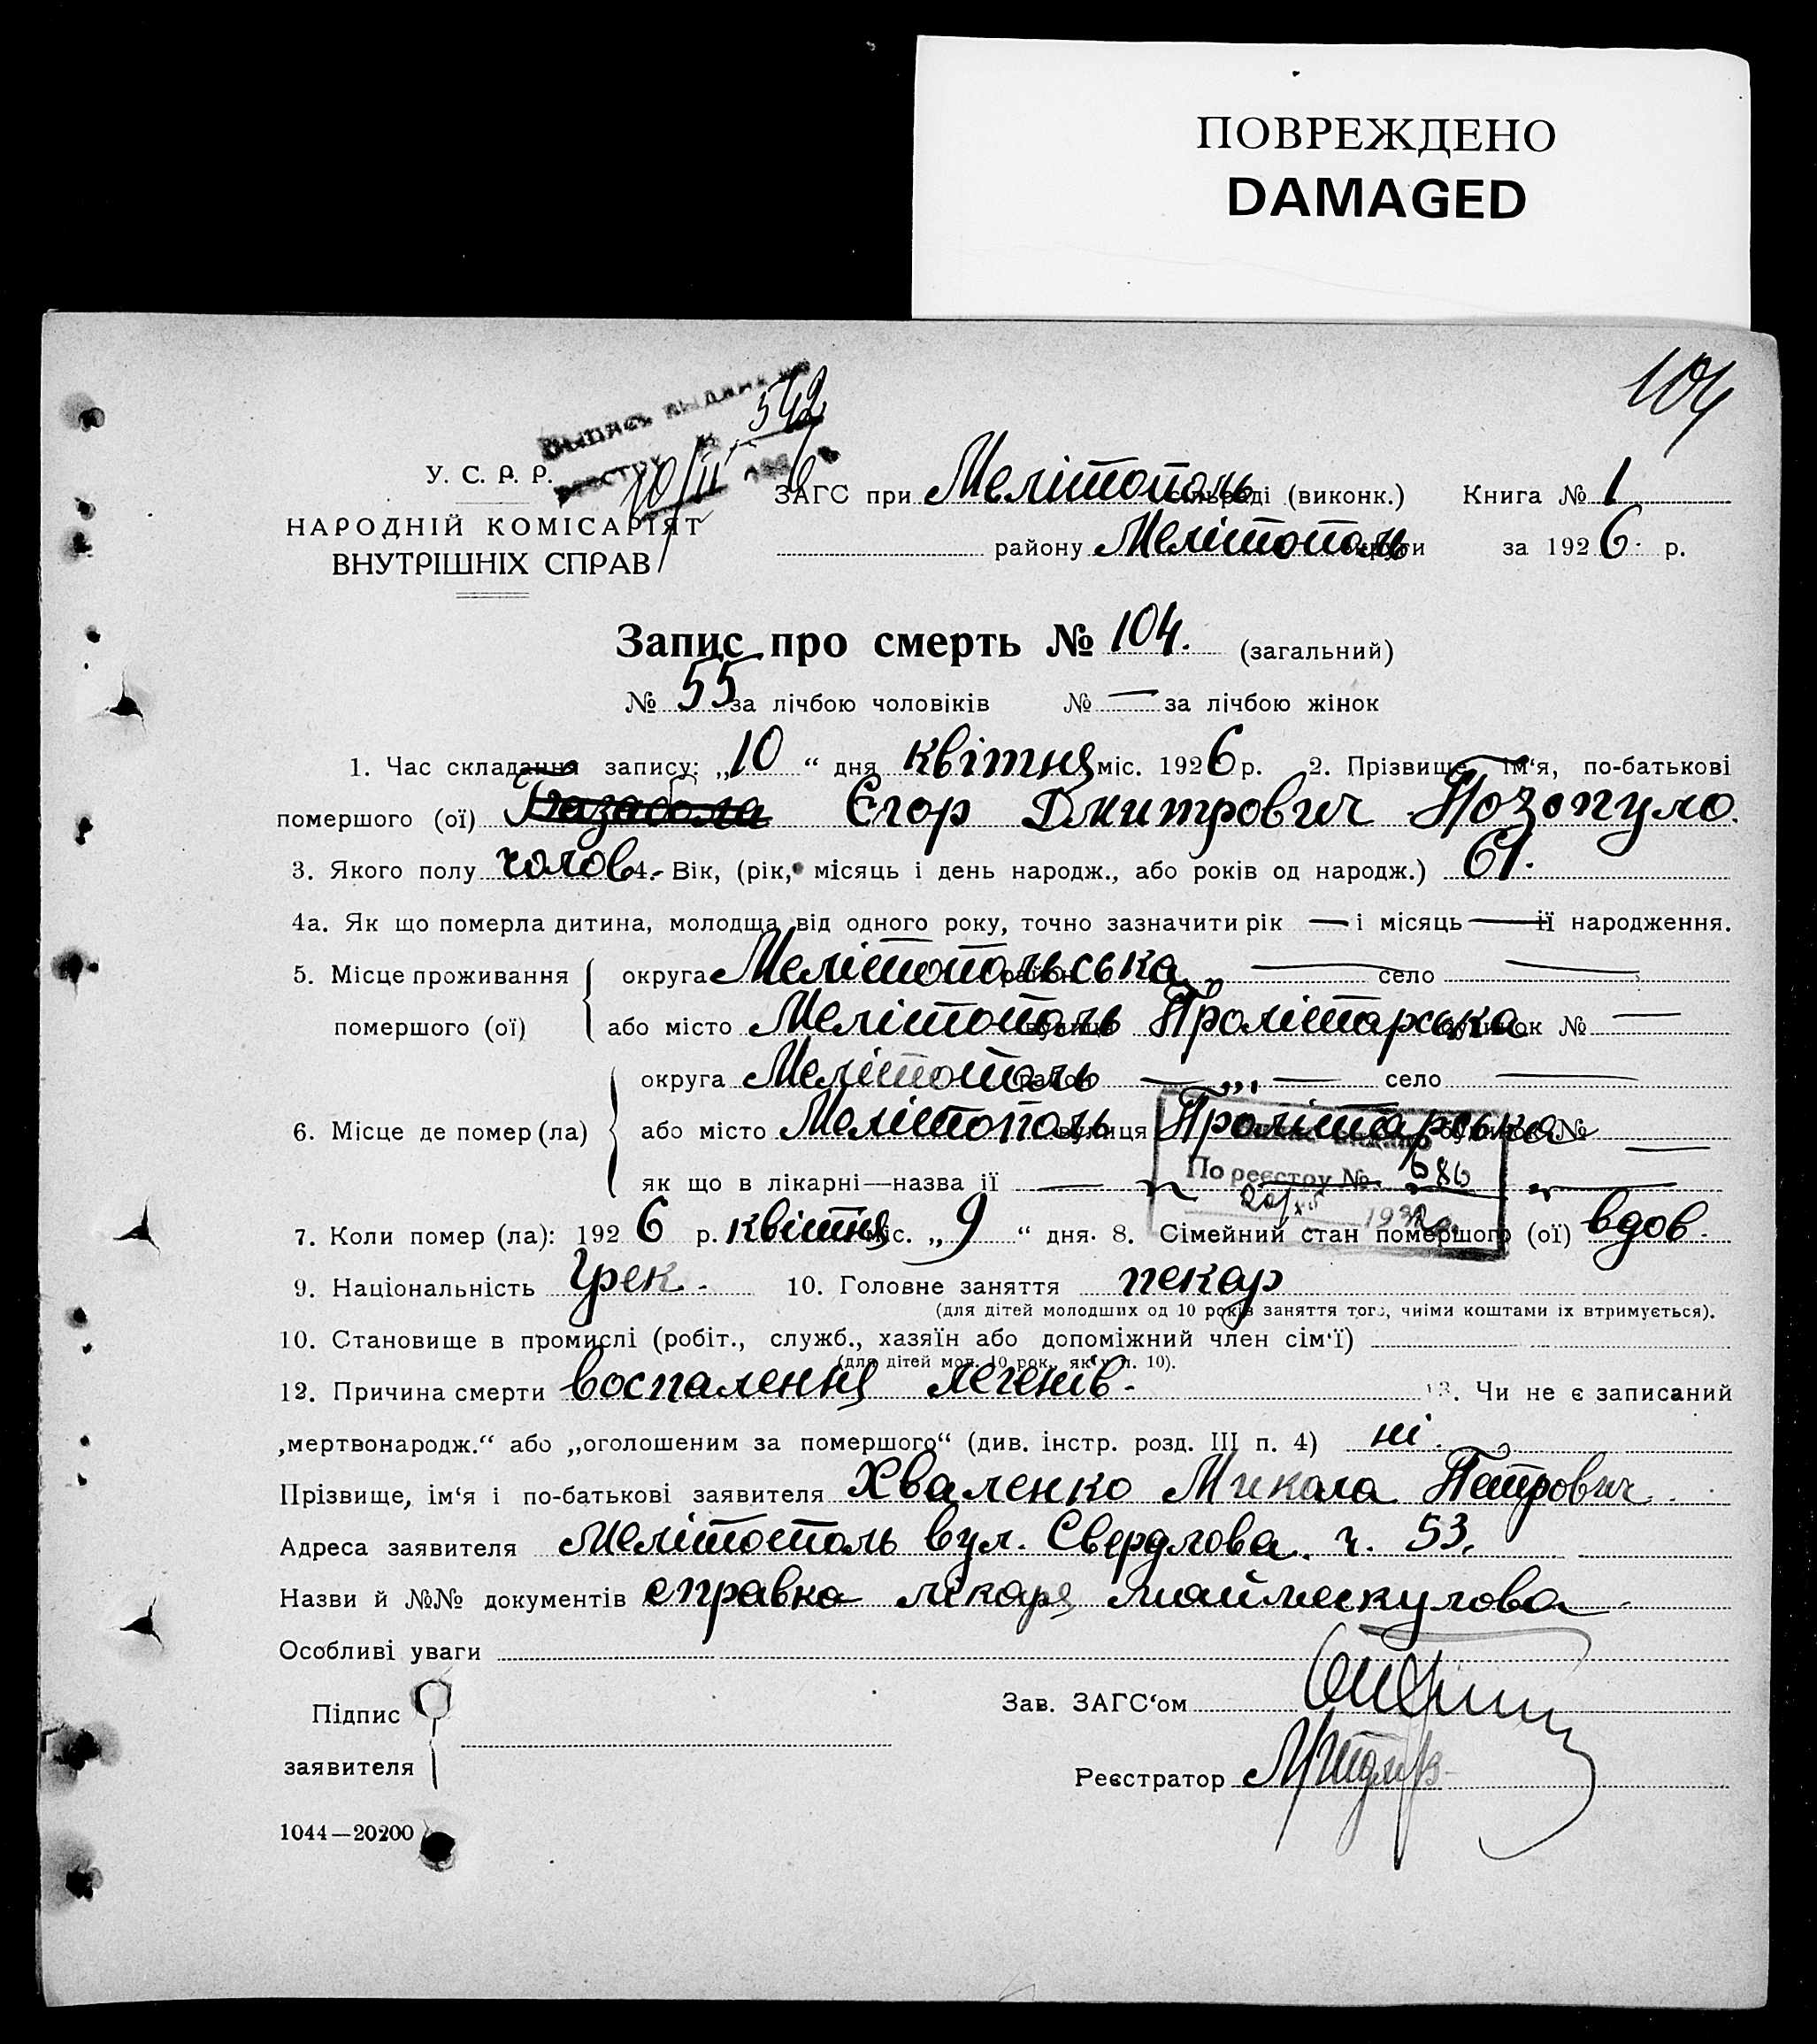 ПОВРЕЖДЕНО
DAMAGED
104
Выпись выдана
реестру № 542
У. С. Р. Р.
ЗАГС при Мелітополь сільраді (виконк.) Книга № 1
НАРОДНІЙ КОМІСАРІЯТ
ВНУТРІШНІХ СПРАВ
району Мелітополь округи за 1926 р.
Запис про смерть № 104. (загальний)
№ 55 за лічбою чоловіків № — за лічбою жінок
1. Час складання запису: „10“ дня квітня міс. 1926 р. 2. Прізвище, ім‘я, по-батькові
помершого (ої) Єгор Дмитрович Позопуло.
3. Якого полу чолов. 4. Вік, (рік, місяць і день народж., або років од народж.) 61.
4а. Як що померла дитина, молодща від одного року, точно зазначити рік — і місяць — ії народження.
5. Місце проживання помершого (ої) округа Мелітопольська район „ — село —
або місто Мелітополь вулиця Пролітарська будинок № —
6. Місце де помер (ла) округа Мелітополь район — „ — село —
або місто Мелітополь вулиця Пролітарська будинок № —
По реєстру № 686
як що в лікарні—назва ії — „ — „ —
7. Коли помер (ла): 1926 р. квітня міс. „9“ дня. 8. Сімейний стан помершого (ої) вдов.
9. Національність Грек. 10. Головне заняття пекар
(для дітей молодших од 10 років заняття того, чиїми коштами їх втримується).
10. Становище в промислі (робіт., служб., хазяїн або допоміжний член сім‘ї)
(для дітей мол. 10 рок., як у п. 10).
12. Причина смерти воспалення легенів. 13. Чи не є записаний
„мертвонародж.“ або „оголошеним за помершого“ (див. інстр. розд. III п. 4) ні.
Прізвище, ім‘я і по-батькові заявителя Хваленко Микола Петрович.
Адреса заявителя Мелітополь вул. Свердлова. ч. 53.
Назви й №№ документів справка лікаря
Особливі уваги
Підпис заявителя
Зав. ЗАГС‘ом
Реєстратор
1044—20200